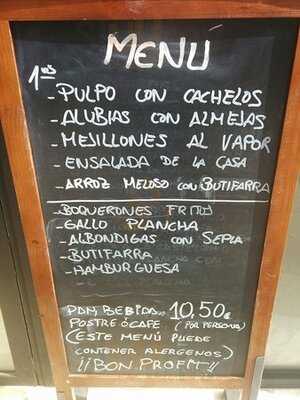 MENÚ
1ºˢ
- PULPO CON CACHELOS
- ALUBIAS CON ALMEJAS
- MEJILLONES AL VAPOR
- ENSALADA DE LA CASA
- ARROZ MELOSO CON BUTIFARRA
- BOQUERONES FRITOS
- GALLO PLANCHA
- ALBONDIGAS CON SEPIA
- BUTIFARRA
- HAMBURGUESA
-
PAN, BEBIDA.. 10,50€
POSTRE Ó CAFÉ (POR PERSONA)
(ESTE MENÚ PUEDE
CONTENER ALERGENOS)
¡¡BON PROFIT!!